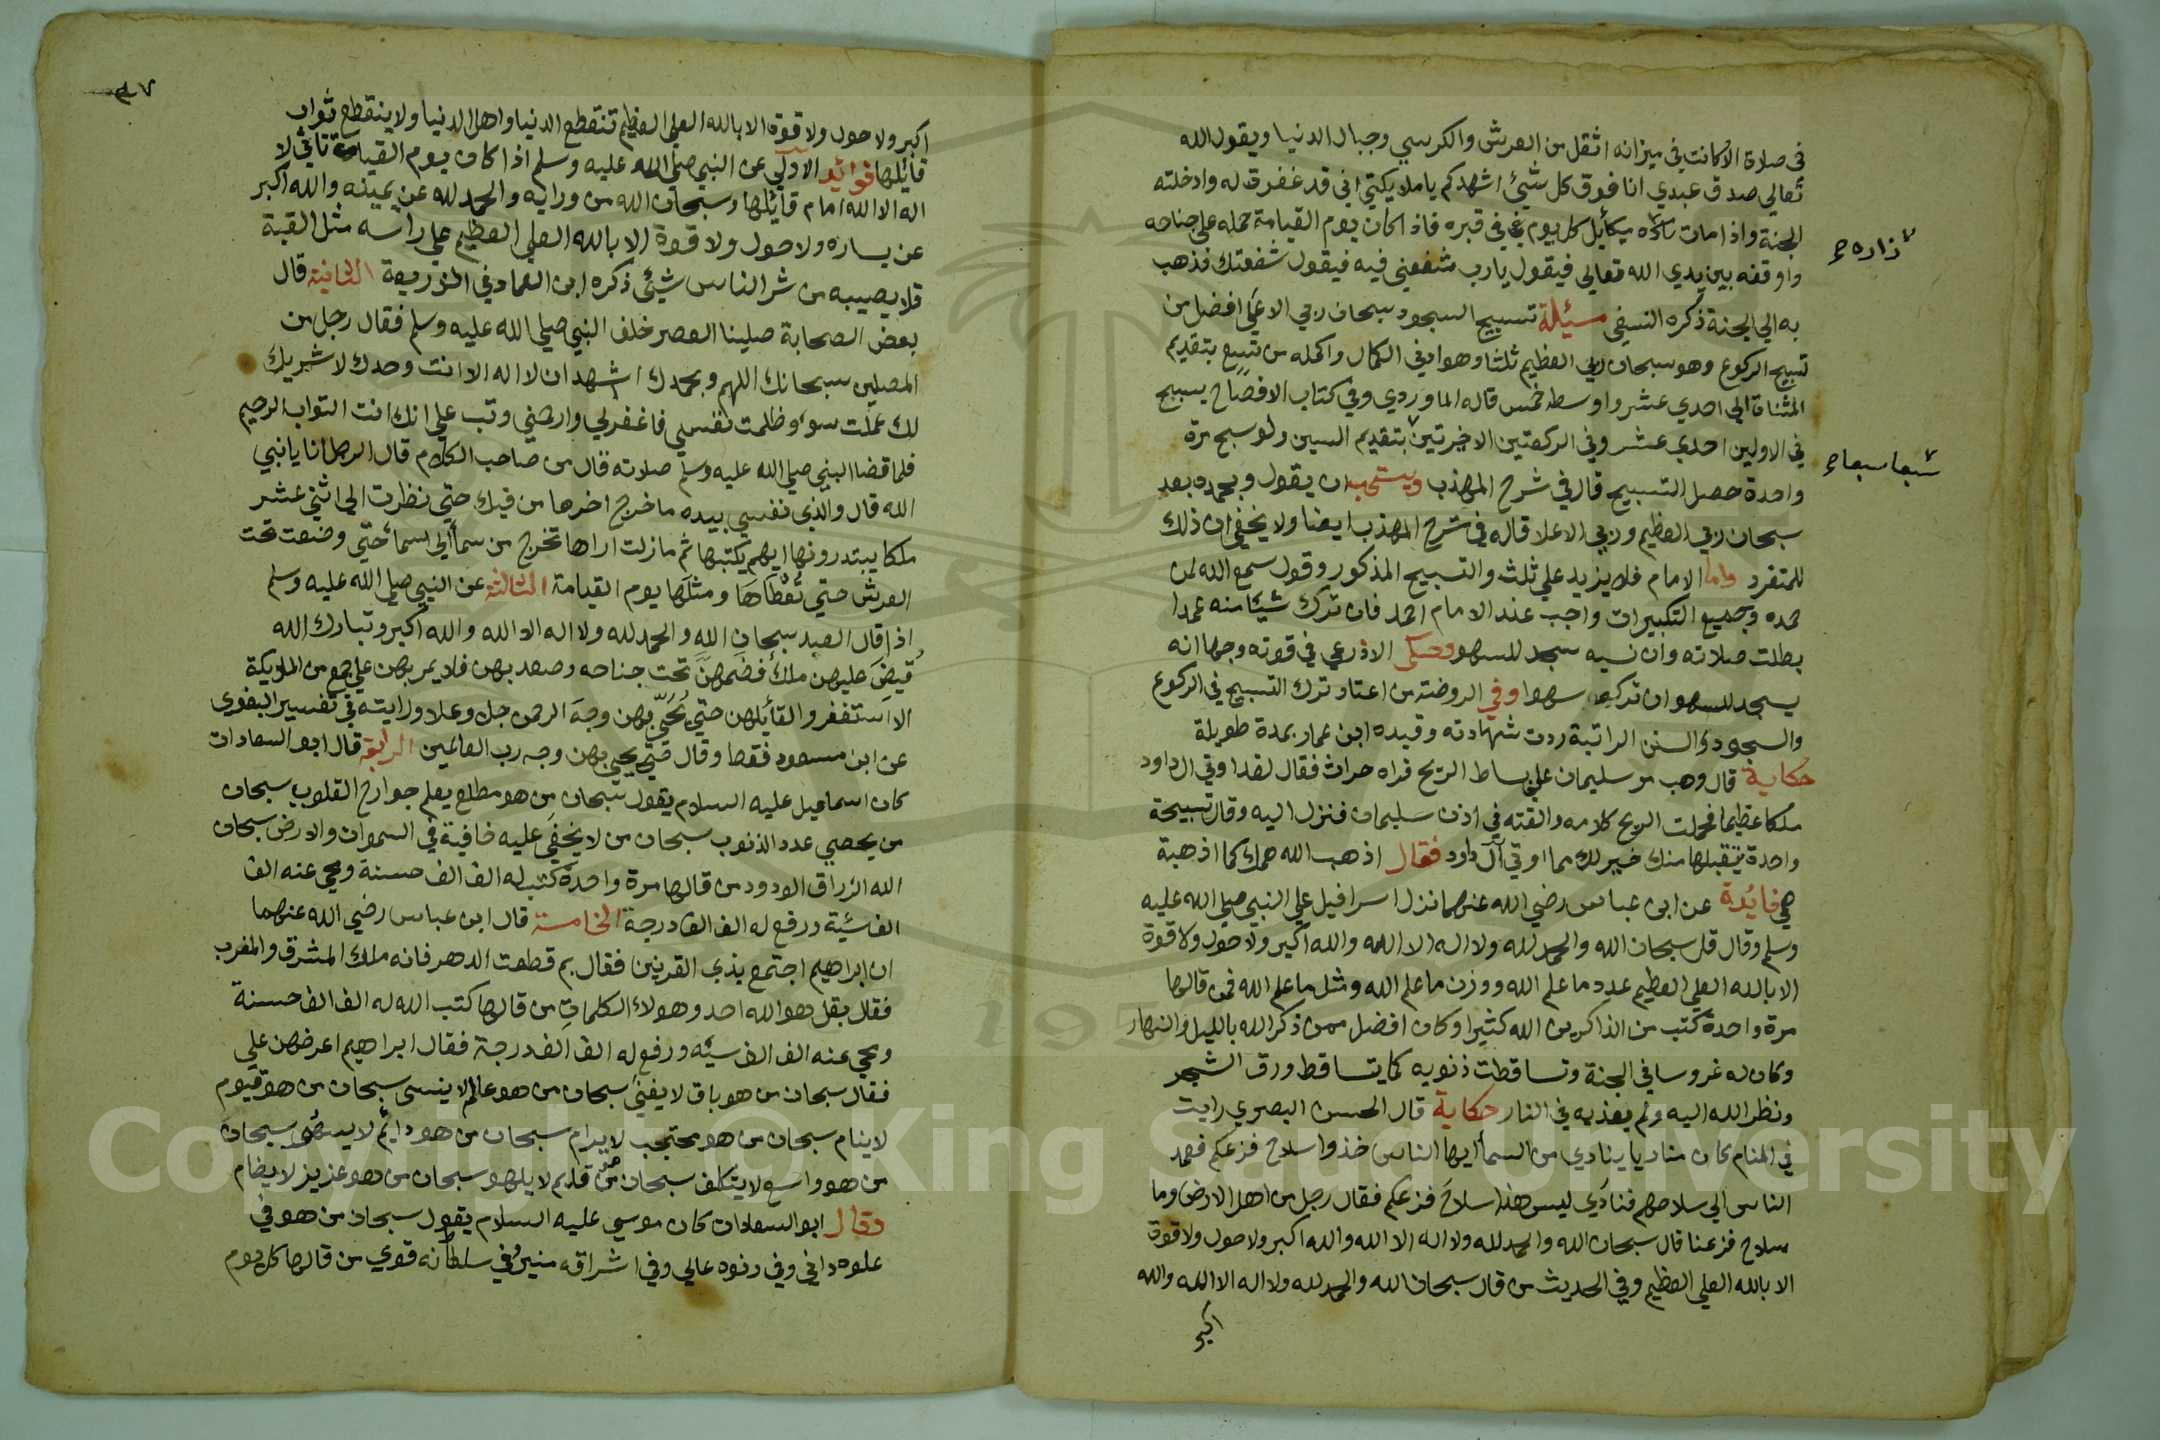 في صلاة الا كانت في ميزانه اثقل من العرش والكرسي وجبال الدنيا ويقول الله
تعالي صدق عبدي انا فوق كل شيئ اشهدكم يا ملايكتي اني قد غفرت له وادخلته
الجنة واذا مات زاره ميكائيل كل يوم في قبره فاذا كان يوم القيامة حمله علي جناحه
زاره
واوقفه بين يدي الله تعالي فيقول يا رب شفعني فيه فيقول شفعتك فذهب
به الي الجنة ذكره النسفي مسئلة تسبيح السجود سبحان ربي الاعلي افضل من
تسبيح الركوع وهو سبحان ربي العظيم ثلثا وهو ادني الكمال واكمله من تسع بتقديم
المثناة الي احدي عشر واوسطه خمس قاله الماوردي وفي كتاب الافصاح يسبح
في الاولين احدي عشر وفي الركعتين الاخيرتين بتقديم السين ولو سبح مرة
سبعا سبعا
واحدة حصل التسبيح قال في شرح المهذب ويستحب ان يقول وبحمده بعد
سبحان ربي العظيم وربي الاعلا قاله في شرح المهذب ايضا ولا يخفي ان ذلك
للمنفرد واما الامام فلا يزيد علي ثلث والتسبيح المذكور وقول سمع الله لمن
حمده وجميع التكبيرات واجب عند الامام احمد فان ترك شيئا منه عمدا
بطلت صلاته وان نسيه سجد للسهو وحكي الاذرعي في قوته وجها انه
يسجد للسهو ان تركه سهوا وفي الروضة من اعتاد ترك التسبيح في الركوع
والسجود والسنن الراتبة ردت شهادته وقيده ابن عمار بمدة طويلة
حكاية قال وهب مر سليمان علي بساط الريح فراه حراث فقال لقد اوتي ال داود
ملكا عظيما فحملت الريح كلامه والقته في اذن سليمان فنزل اليه وقال تسبيحة
واحدة يتقبلها منك خير لك مما اوتي آل داود فقال اذهب الله همك كما اذهبة
همي فايدة عن ابن عباس رضي الله عنهما نزل اسرافيل علي النبي صلي الله عليه
وسلم وقال قل سبحان الله والحمد لله ولا اله الا الله والله اكبر ولا حول ولا قوة
الا بالله العلي العظيم عدد ما علم الله ووزن ما علم الله ومثل ما علم الله فمن قالها
مرة واحدة كتب من الذاكرين الله كثيرا وكان افضل ممن ذكر الله بالليل والنهار
وكان له غروسا في الجنة وتساقطت ذنوبه كما يتساقط ورق الشجر
ونظر الله اليه ولم يعذبه في النار حكاية قال الحسن البصري رايت
في المنام كان مناديا ينادي من السما ايها الناس خذوا سلاح فزعكم فعمد
الناس الي سلاحهم فنادي ليس هذا سلاح فزعكم فقال رجل من اهل الارض وما
سلاح فزعنا قال سبحان الله والحمد لله ولا اله الا الله والله اكبر ولا حول ولا قوة
الا بالله العلي العظيم وفي الحديث من قال سبحان الله والحمد لله ولا اله الا الله والله
اكبر
٤٧
اكبر ولا حول ولا قوة الا بالله العلي العظيم تنقطع الدنيا واهل الدنيا ولا ينقطع ثواب
قائلها فوائد الاولي عن النبي صلي الله عليه وسلم اذا كان يوم القيامة تاتي لا
اله الا الله امام قائلها وسبحان الله من ورايه والحمد لله عن يمينه والله اكبر
عن يساره ولا حول ولا قوة الا بالله العلي العظيم علي راسه مثل القبة
فلا يصيبه من شر الناس شيئ ذكره ابن العماد في الذريعة الثانية قال
بعض الصحابة صلينا العصر خلف النبي صلي الله عليه وسلم فقال رجل من
المصلين سبحانك اللهم وبحمدك اشهد ان لا اله الا انت وحدك لا شريك
لك عملت سوء وظلمت نفسي فاغفر لي وارحمني وتب علي انك انت التواب الرحيم
فلما قضا النبي صلي الله عليه وسلم صلاته قال من صاحب الكلام قال الرجل انا يا نبي
الله قال والذي نفسي بيده ما خرج اخرها من فيك حتي نظرت الي اثني عشر
ملكا يبتدرونها ايهم يكتبها ثم ما زلت اراها تخرج من سما الي سما حتي وضعت تحت
العرش حتي تعطاها ومثلها يوم القيامة الثالثة عن النبي صلي الله عليه وسلم
اذا قال العبد سبحان الله والحمد لله ولا اله الا الله والله اكبر وتبارك الله
قيض عليهن ملك فضمهن تحت جناحه وصعد بهن فلا يمر بهن علي جمع من الملايكة
الا استغفر والقائلهن حتي يحيي بهن وجه الرحمن جل وعلا ورايته في تفسير البغوي
عن ابن مسعود فقط وقال حتي يحيي بهن وجه رب العالمين الرابعة قال ابو السعادات
كان اسماعيل عليه السلام يقول سبحان من هو مطلع يعلم جوارح القلوب سبحان
من يحصي عدد الذنوب سبحان من لا يخفي عليه خافية في السموات والارض سبحان
الله الرزاق الودود من قالها مرة واحدة كتب له الف الف حسنة ومحي عنه الف
الف سيئة ورفع له الف الف درجة الخامسة قال ابن عباس رضي الله عنهما
ان ابراهيم اجتمع بذي القرنين فقال بم قطعت الدهر فانه ملك المشرق والمغرب
فقال بقل هو الله احد وهولاء الكلمات من قالها كتب الله له الف الف حسنة
ومحي عنه الف الف سيئه ورفع له الف الف درجة فقال ابراهيم اعرضهن علي
فقال سبحان من هو باق لا يفني سبحان من هو عالم لا ينسي سبحان من هو قيوم
لا ينام سبحان من هو محتجب لا يرام سبحان من هو دائم لا يسهو سبحان
من هو واسع لا يتكلف سبحان من هو قديم لا يلهو سبحان من هو عزيز لا يضام
وقال ابو السعادات كان موسي عليه السلام يقول سبحان من هو في
علوه داني وفي دنوه عالي وفي اشراقه منير وفي سلطانه قوي من قالها كل يوم
Copyright © King Saud University